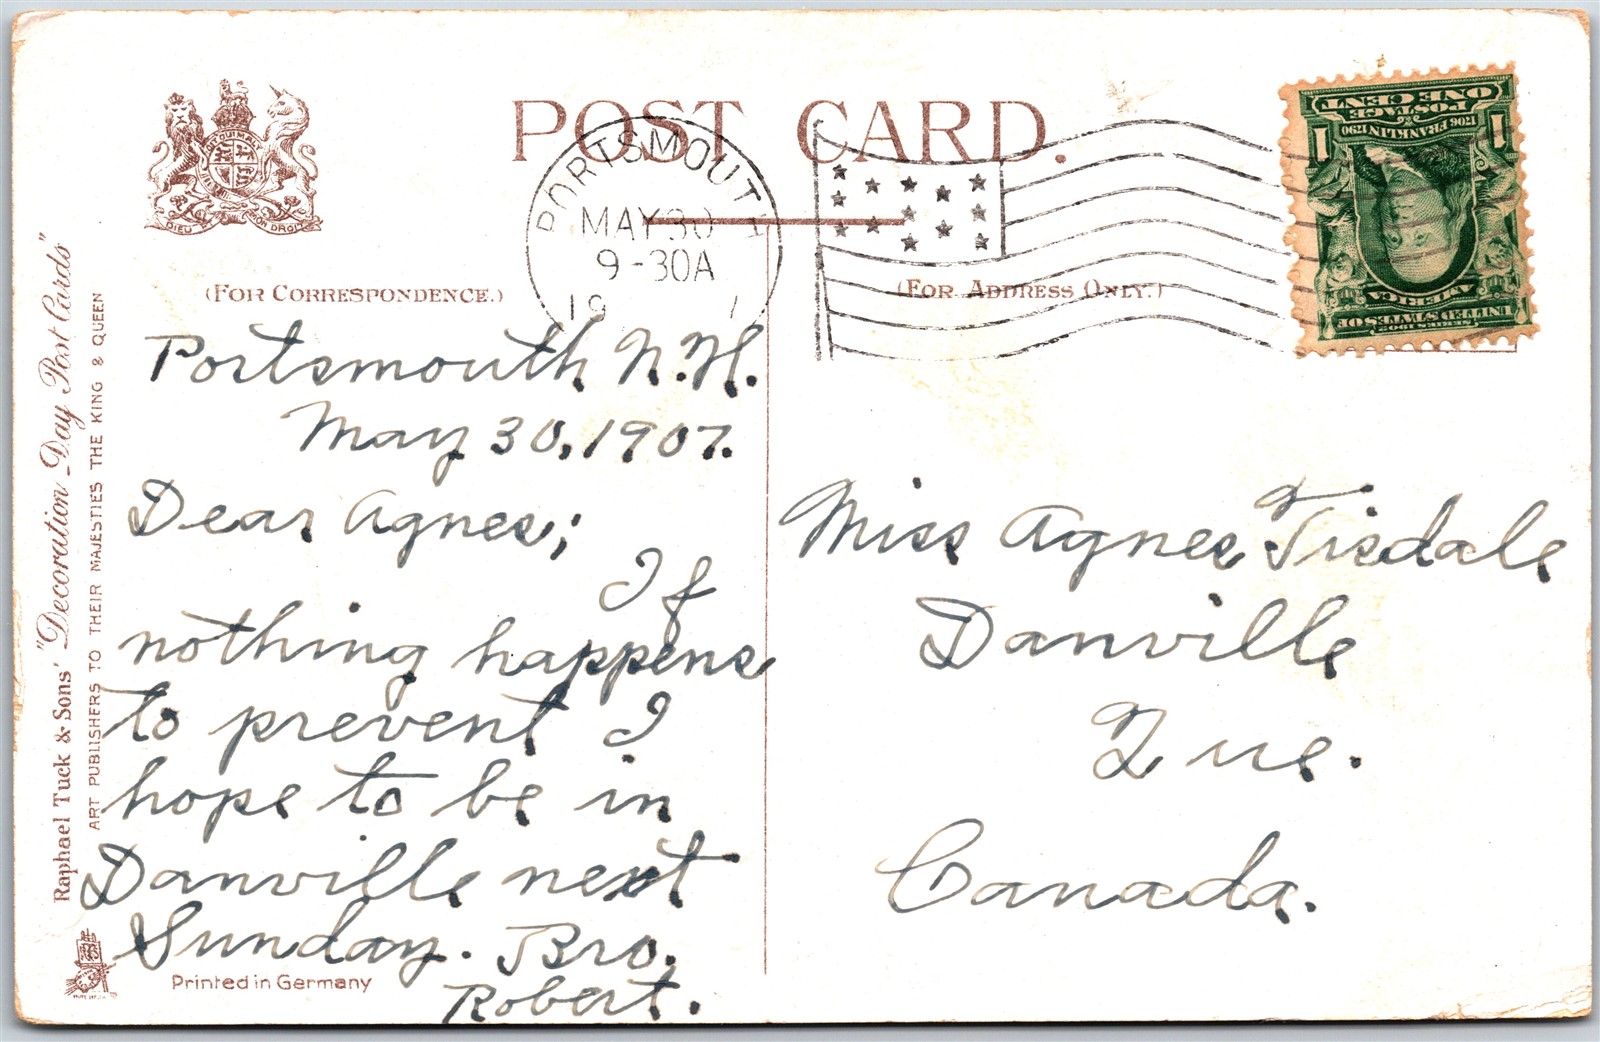 POST CARD.
PORTSMOUTH
MAY 30
9-30A
19 7
DIEU ET MON DROIT
(FOR CORRESPONDENCE.)
(FOR ADDRESS ONLY.)
1 1
ONE CENT
POSTAGE
1706 FRANKLIN 1790
AMERICA
UNITED STATES OF
SERIES 1902
Portsmouth N.H.
May 30, 1907.
Dear Agnes;
If
nothing happens
to prevent I
hope to be in
Danville next
Sunday. Bro.
Robert.
Miss Agnes Tisdale
Danville
Que.
Canada.
Raphael Tuck & Sons' "Decoration Day Post Cards"
ART PUBLISHERS TO THEIR MAJESTIES THE KING & QUEEN
Printed in Germany